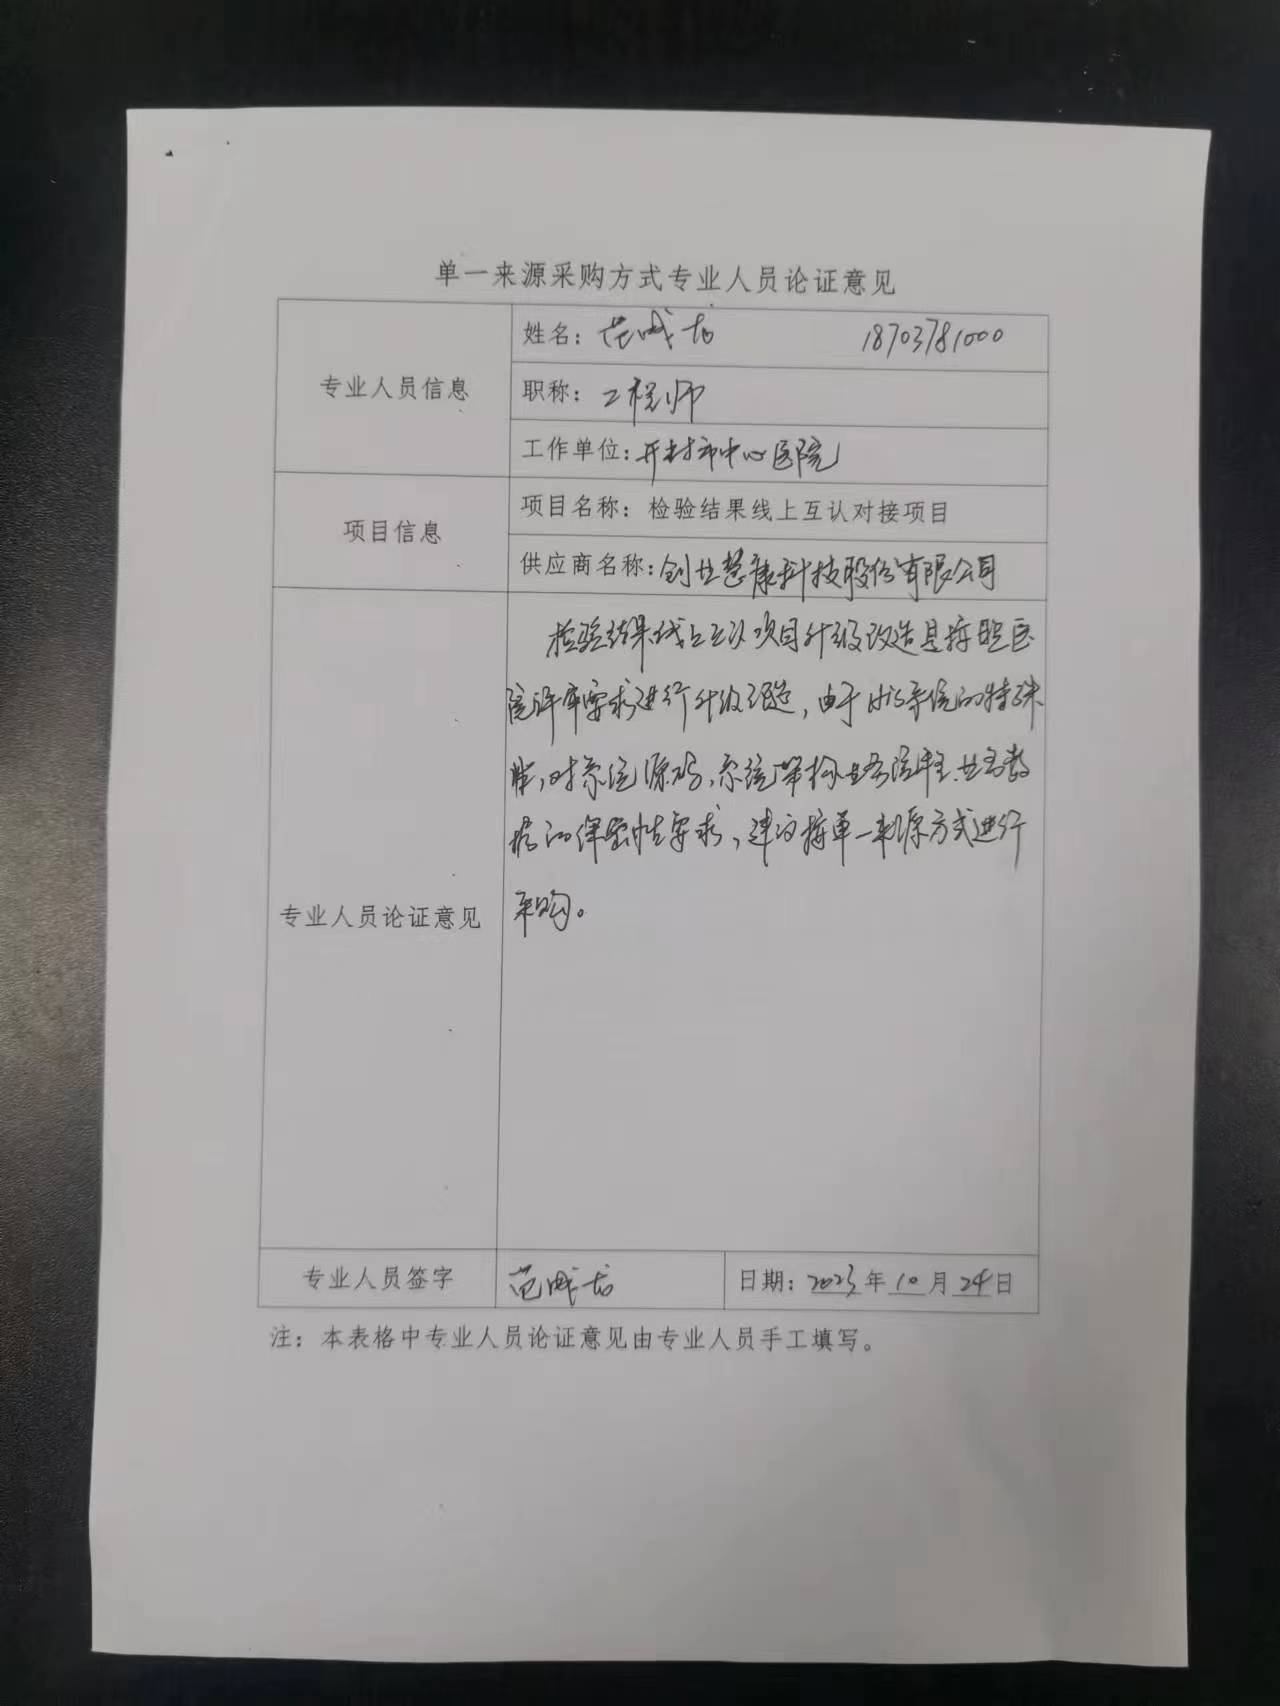 单一来源采购方式专业人员论证意见
专业人员信息
姓名：范成龙 18703781000
职称：工程师
工作单位：开封市中心医院
项目信息
项目名称：检验结果线上互认对接项目
供应商名称：创业慧康科技股份有限公司
专业人员论证意见
检验结果线上互认项目升级改造是按照医
院评审要求进行升级改造，由于HIS系统的特殊
性，对系统源码，系统架构业务流程、业务数
据的保密性要求，建议按单一来源方式进行
采购。
专业人员签字
范成龙
日期：2023年10月24日
注：本表格中专业人员论证意见由专业人员手工填写。